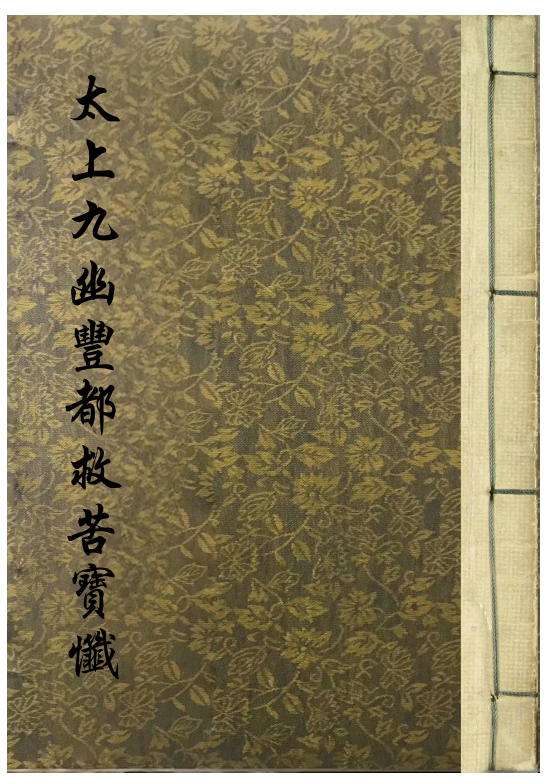 太上九幽豐都救苦寶懺